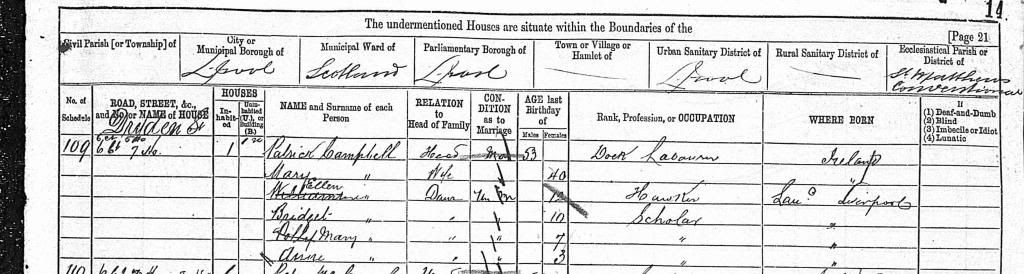 14
The undermentioned Houses are situate within the Boundaries of the
[Page 21
Civil Parish [or Township] of City or Municipal Borough of Municipal Ward of Parliamentary Borough of Town or Village or Hamlet of Urban Sanitary District of Rural Sanitary District of Ecclesiastical Parish or District of
L'pool Scotland L'pool L'pool St Matthews Conventional
No. of Schedule ROAD, STREET, &c., and No. or NAME of HOUSE HOUSES Inhabited Uninhabited (U.), or Building (B.) NAME and Surname of each Person RELATION to Head of Family CONDITION as to Marriage AGE last Birthday of Males Females Rank, Profession, or OCCUPATION WHERE BORN If (1) Deaf-and-Dumb (2) Blind (3) Imbecile or Idiot (4) Lunatic
Dryden St
109 7 Ho. 1 Patrick Campbell Head Mar 53 Dock Labourer Ireland
Mary " Wife 40 "
Ellen " Daur Un Hawker Lanc Liverpool
Bridget " " 10 Scholar "
Polly Mary " " 7 " "
Annie " " 3 "
110